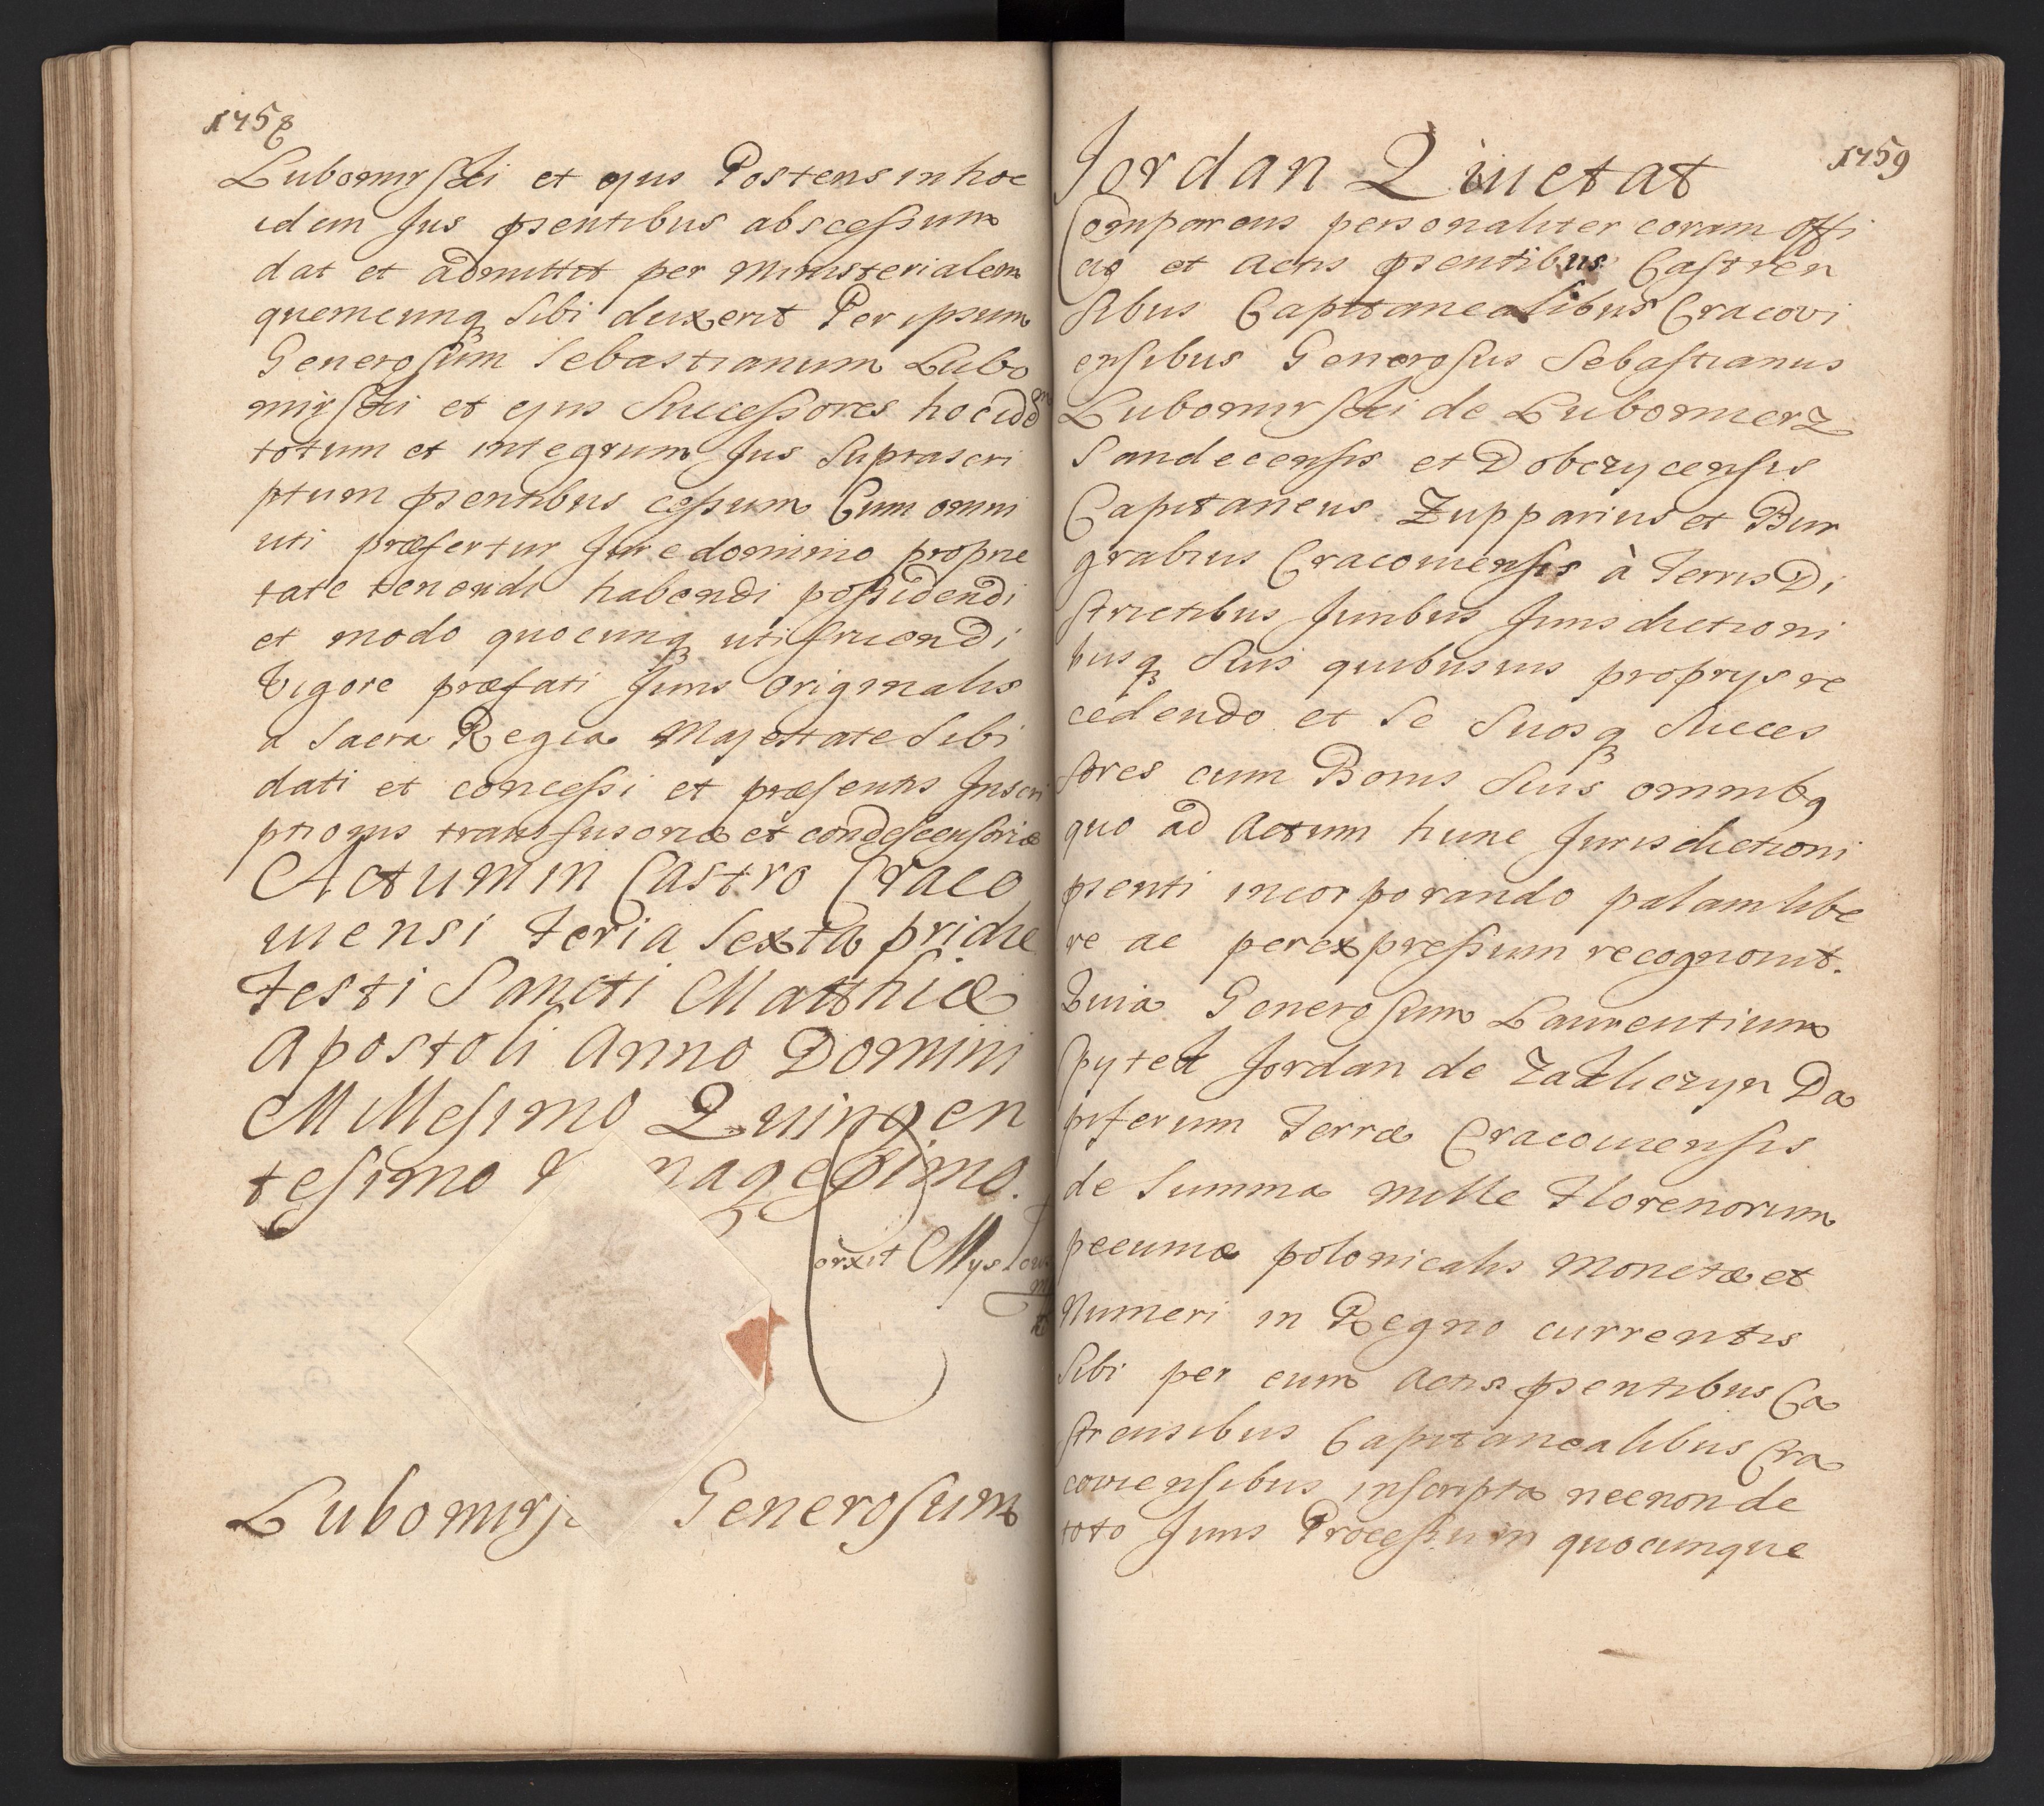 1758
Lubomirski et ejus Posteris in hoc
idem Jus psentibus abscessum
dat et admittet per Ministerialem
quemcunq Sibi duxerit Per ipsum
Generosum Sebastianum Lubo
mirski et ejus Successores hocidd
totum et integrum Jus Suprascri
ptum psentibus cessum Cum omni
uti præfertur Jure dominio proprie
tate tenendi habendi possidendi
et modo quocunq utifruendi
Vigore præfati Juris Originalis
a Sacra Regia Majestate Sibi
dati et concessi et præsentis Inscri
ptionis transfusoriæ et condescensoriæ
Actum in Castro Craco
viensi Feria Sexta pridie
Festi Sancti Matthiæ
Apostoli Anno Domini
Millesimo Quingen
tesimo nagesimo.
Lubomirs Generosum
1759
Jordan Quietat
Comparens personaliter coram Offi
cio et Actis psentibus Castren
sibus Capitanealibus Cracovi
ensibus Generosus Sebastianus
Lubomirski de Lubomierz
Sandecensis et Dobczycensis
Capitaneus Zupparius et Bur
grabius Cracoviensis à Terris Di
strictibus Juribus Jurisdictioni
busq Suis quibusvis propriys re
cedendo et Se Suosq Succes
sores cum Bonis Suis omnibq
quo ad Actum hunc Jurisdictioni
psenti incorporando palam libe
re ac per expressum recognovit.
Quia Generosum Laurentium
Spytek Jordan de Zakliczyn Da
piferum Terræ Cracoviensis
de Summa mille Florenorum
pecuniæ polonicalis Monetæ et
Numeri in Regno currentis
Sibi per eum Actis psentibus Ca
strensibus Capitanealibus Cra
coviensibus inscripta necnon de
toto Juris Processu in quocunque